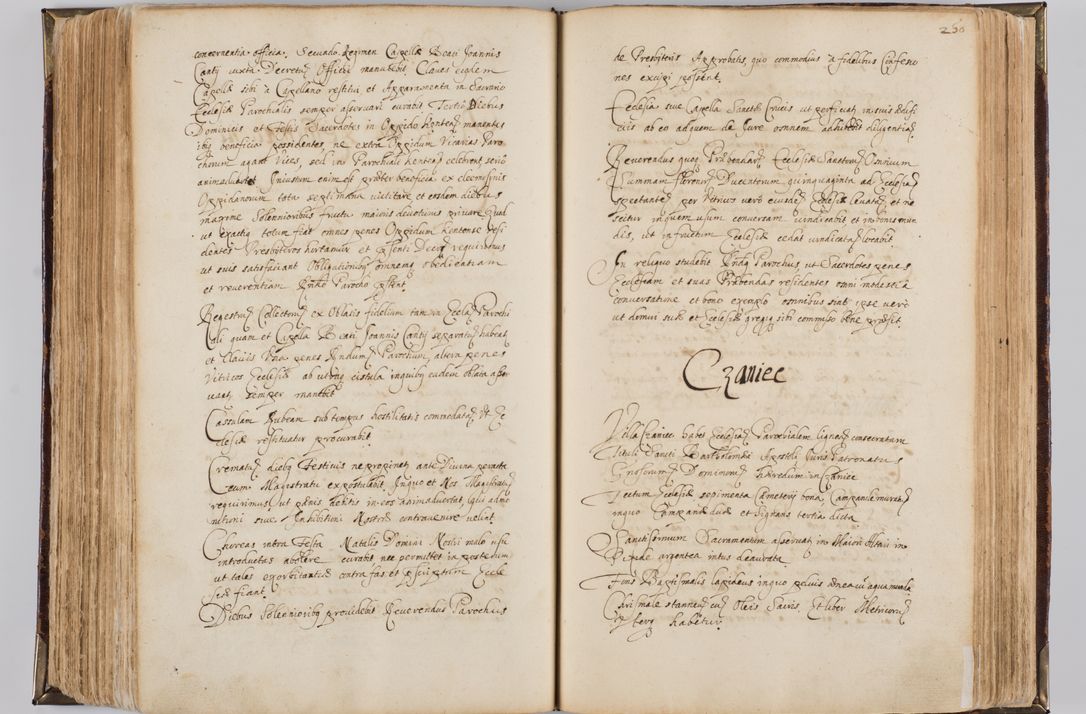 concernentia officia. Secundo Regimen Capellæ Beati Joannis
Cantij iuxta Decretũ Officij manutebit Claues eiusdem
Capellæ sibi à Capellano restitui, et Apparamenta in Sacrario
Ecclesiæ Parochialis semper asseruari curabit Tertio Diebus
Dominicis et Festis Sacerdotes in Oppido Kentez manentes
ibiq beneficia possidentes ne extra Oppidum Vicarias Paro
chorum agant Vices, sed in Parochiali Kenten celebrent serio
animaduertet Iniustum enim est præter beneficia ex eleemosinis
Oppidanorum tota septimana victitare et eosdem diebus
maxime Solennioribus fructu maioris deuotionis priuare Quod
ut exactiq totum fiat omnes penes Oppidum Kentense resi
dentes Presbiteros hortamur et psenti Decreto requirimus
ut suis satisfaciant Obligationibq omnemq obedientiam
et reuerentiam Rndo Parocho pstent
Regestrũ Collectorũ ex Oblatis fidelium tam in Eccla Parochi
ali quam et Capella Beati Joannis Cantij separatim habeat
et Clauis Vna penes Rndum Parochum, altera penes
Vitricos Ecclesiæ ab utraq cistula inquibq eadem oblata asser
uant, semper manebit
Cassulam Rubeam sub tempus hostilitatis commodatã ut Ec
clesiæ restituatur procurabit
Crematũ diebq Festiuis ne propinet ante Diuina peracta
cum Magistratu expostulabit Inquo et Nos Magistratũ
requirimus, ut pœnis hastis in eos animaduertat, qui admo
nitioni siue Inhibitioni Nostræ controuenire velint.
Choreas intra Festa Natalis Domini Nostri malo usu
introductas abolere curabit, nec permittet in posterum
ut tales exorbitantiæ contra fas et pscriptum Eccle
siæ fiant
Diebus Solennioribq prouidebit Reuerendus Parochus
250
de Presbiteris Approbatis, quo commodius à fidelibus Confessio
nes excipi possent.
Ecclesia siue Capella Sanctæ Crucis ut perficiat in suis ædifi
cijs ab eo ad quem de Jure osnem adhibebit diligentiã
Reuerendus quoq Præbendarũ Ecclesiæ Sanctorũ Omnium
Summam florenorũ Ducentorum quinquaginta ad Ecclesiã
spectantem, per Vitricos vero eiusdẽ Ecclesiæ leuatã, et ne
scitur in quem usum conuersam vindicabit et in bonis mun
dis, ut in fructum Ecclesiæ cedat vindicatã locabit
In reliquo studebit Rndq Parochus ut Sacerdotes penes
Ecclesiam et suas Præbendas residentes omni modestia
conuersatione et bono exemplo omnibus sint ipse vero
ut domui suæ et Ecclesiæ gregiq sibi commisso bene præsit.
Czaniec
Villa Czaniec habet Ecclesiã Parochialem ligneã consecratam
tituli Sancti Bartholomæi Apostoli Juris Patronatus
Gnosorum Dominorũ hæredum in Czaniec
Tectum Ecclesiæ sepimenta Cæmeterij bona Campanile muratũ
in quo Campanæ duæ et Signans tertia dicta
Sanctissimum Sacramentum asseruat in Maiori Altari in
Pixide argentea intus deaurata
Fons Baptismalis lapideus in quo peluis ænea cũ aqua munda
Chrismale stanneũ cũ Oleis Sacris Et liber Metricarũ
habetur